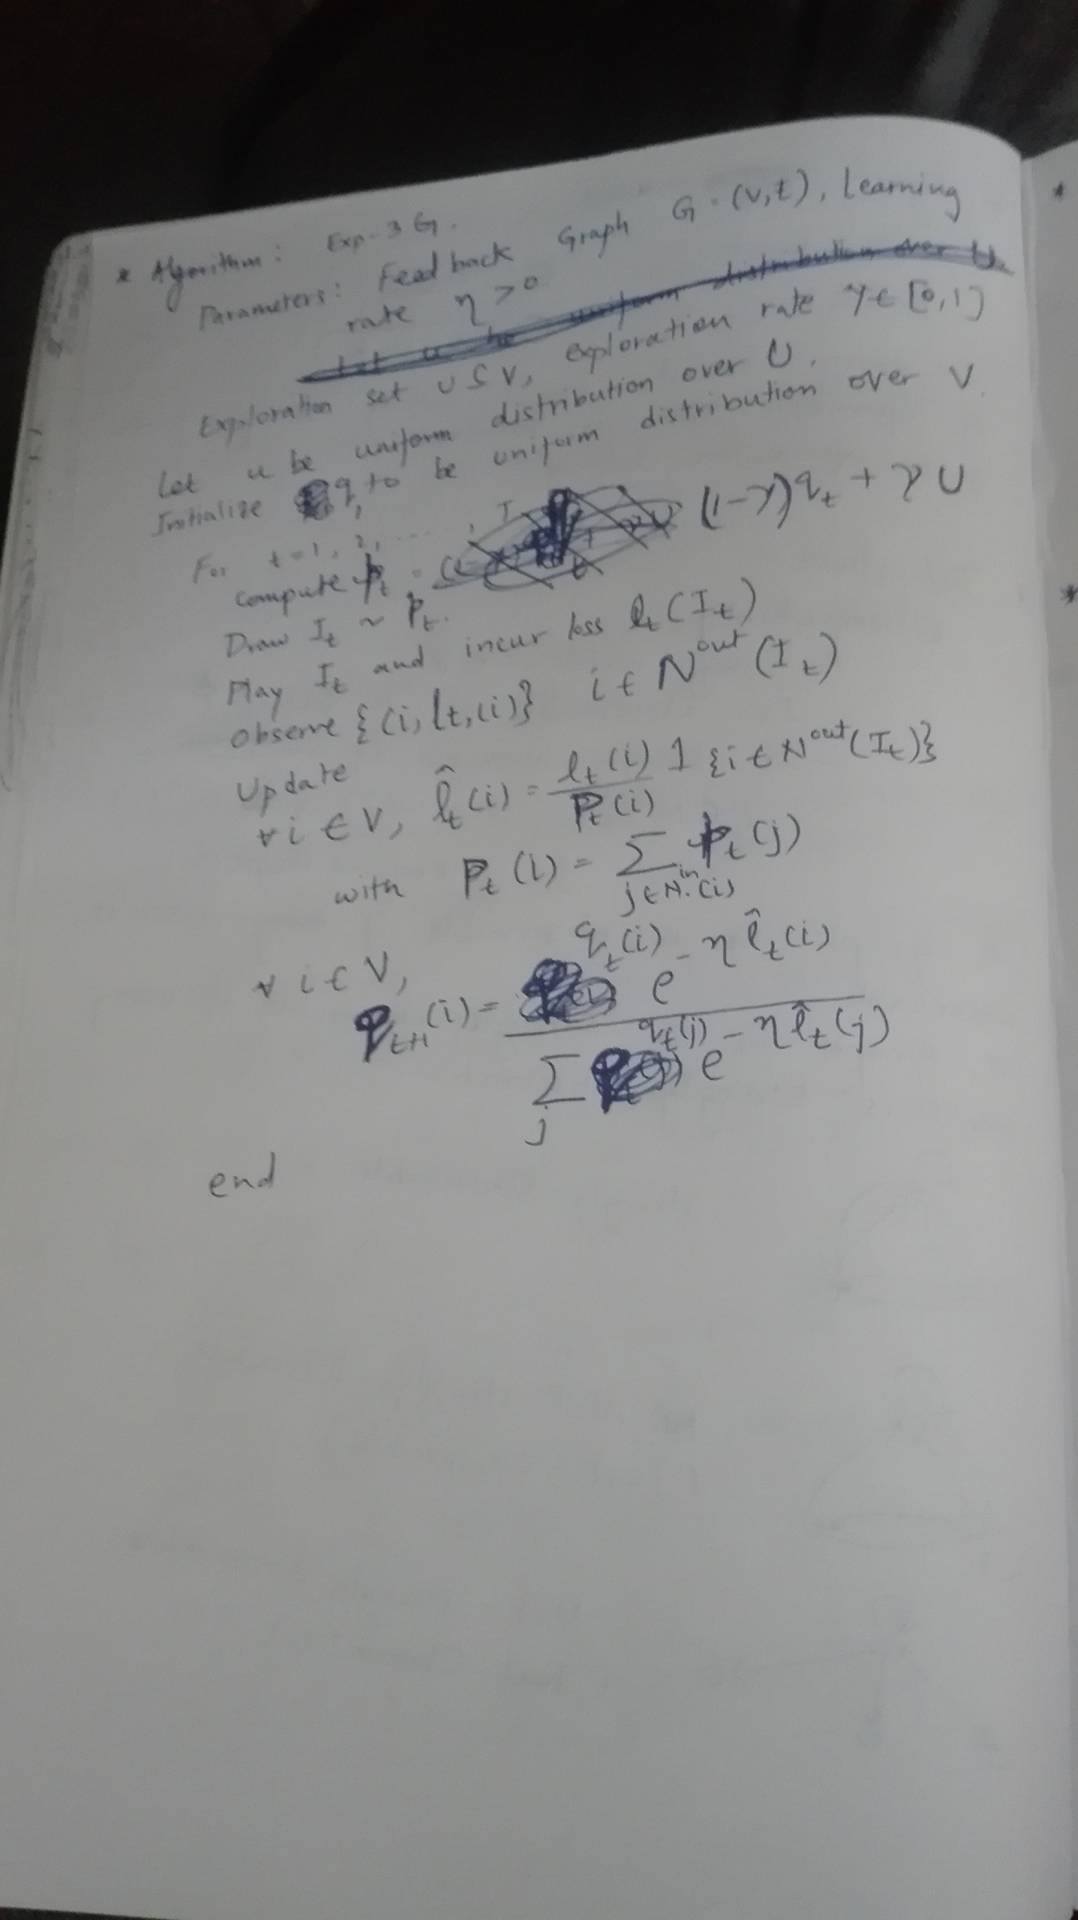 * Algorithm: Exp-3 G.
Parameters: Feed back Graph G = (V, E), Learning
rate η > 0
Let u be uniform distribution over U.
Exploration set U ⊆ V, exploration rate γ ∈ [0,1]
Let u be uniform distribution over U.
Initialize q₁ to be uniform distribution over V.
For t = 1, 2, ...., T
compute p_t = (1-γ) q_t + γ U
Draw I_t ~ p_t.
Play I_t and incur loss l_t(I_t)
Observe {(i, l_t,(i)} i ∈ N^out (I_t)
Update
∀ i ∈ V, l̂_t(i) = l_t(i) 1 {i ∈ N^out(I_t)} / P_t(i)
with P_t(i) = Σ_{j ∈ N^in(i)} p_t(j)
∀ i ∈ V,
q_{t+1}(i) = q_t(i) e^{-η l̂_t(i)} / Σ_j q_t(j) e^{-η l̂_t(j)}
end